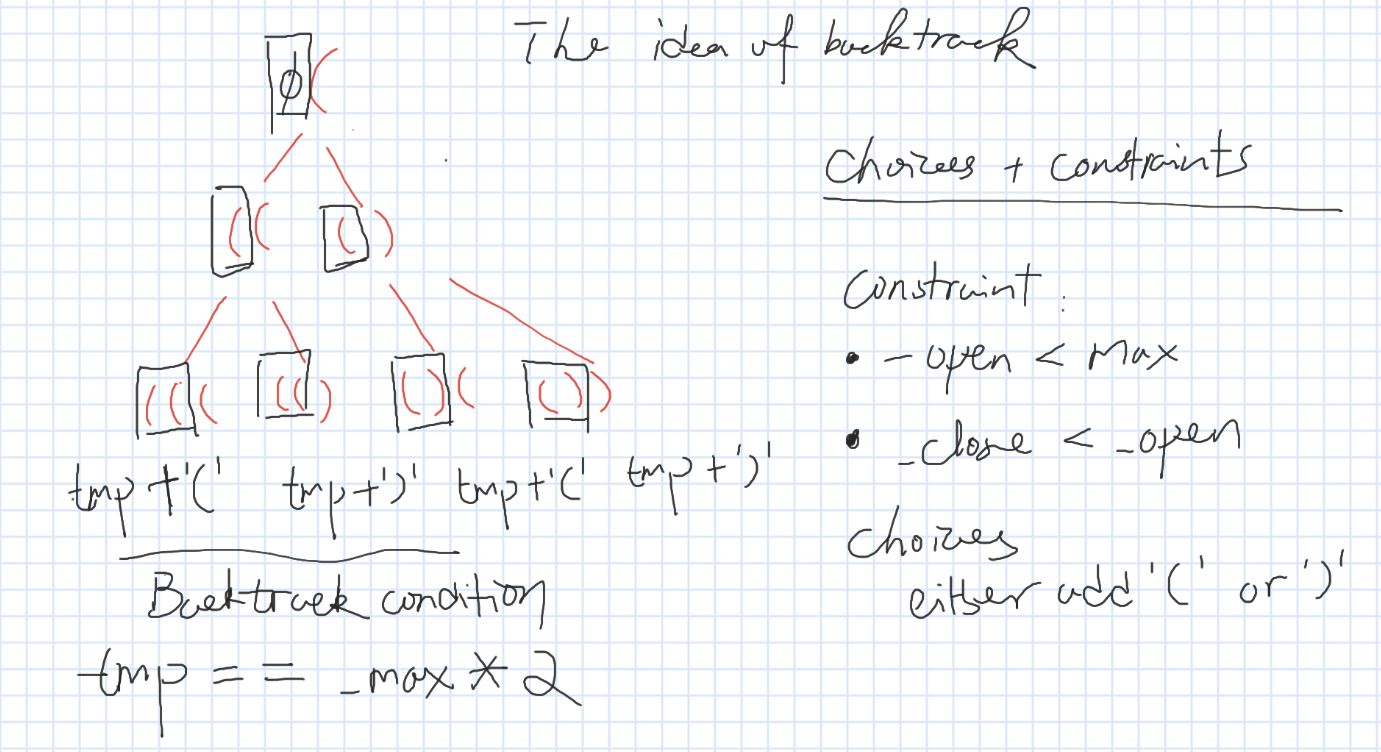 The idea of backtrack
φ (
( ( ( )
( ( ( ( ( ) ( ) ( ( ) )
tmp+'(' tmp+')' tmp+'(' tmp+')'
Backtrack condition
tmp == _max * 2
Choices + constraints
Constraint:
• _open < Max
• _close < _open
Choices
either add '(' or ')'